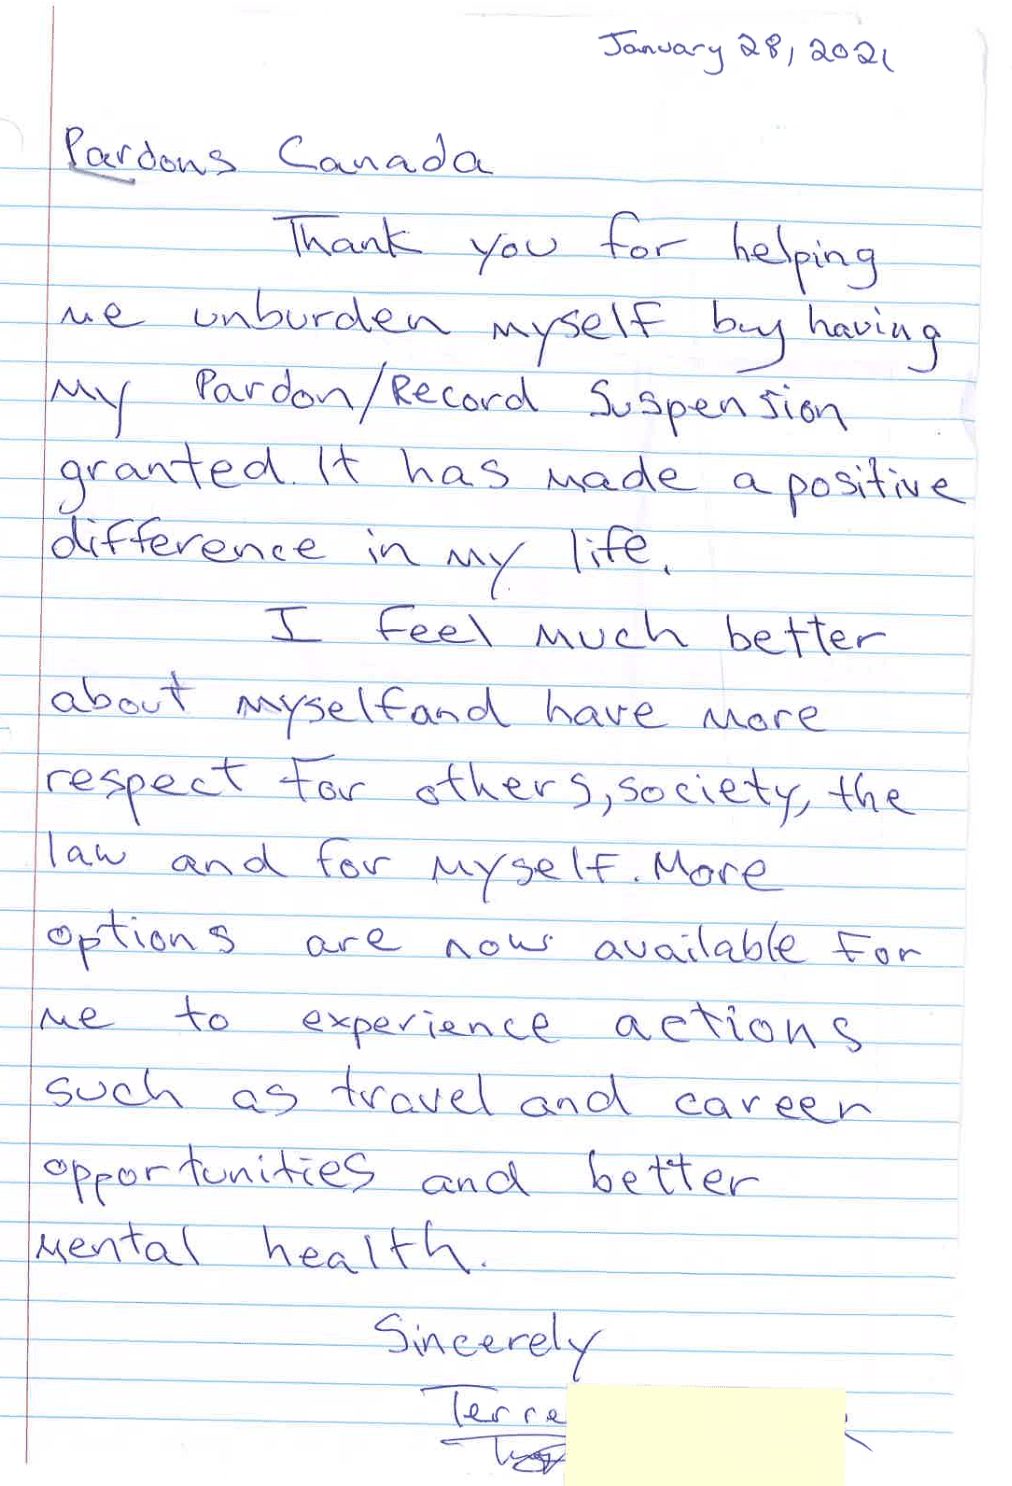 January 28, 2021
Pardons Canada
Thank you for helping
me unburden myself by having
my Pardon/Record Suspension
granted. It has made a positive
difference in my life.
I feel much better
about myself and have more
respect for others, society, the
law and for myself. More
options are now available for
me to experience actions
such as travel and career
opportunities and better
mental health.
Sincerely
Terre